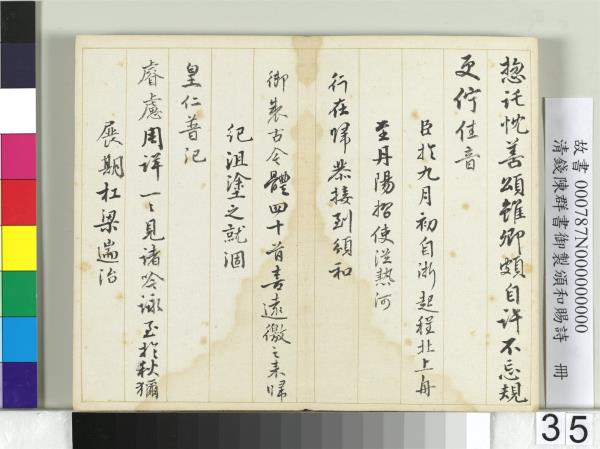 惣託忱善頌雖卿頗自許不忘規
更佇佳音
臣於九月初自浙起程北上舟
至丹陽摺使從熱河
行在歸恭接到頒和
御製古今體四十首喜遠徼之來歸
紀沮塗之就涸
皇仁普記
睿慮周詳一々見諸吟詠至於秋獮
展期杠梁遄治
故書 000787N000000000
清錢陳群書御製頒和賜詩 冊
35